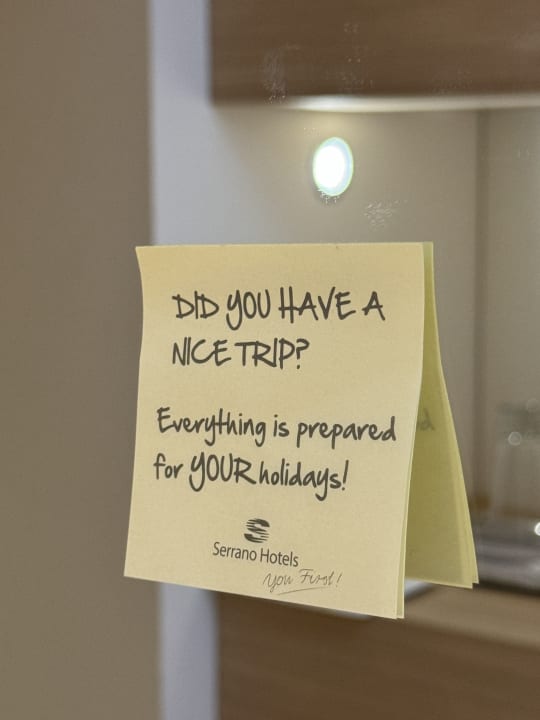 DID YOU HAVE A
NICE TRIP?
Everything is prepared
for YOUR holidays!
Serrano Hotels
You First!